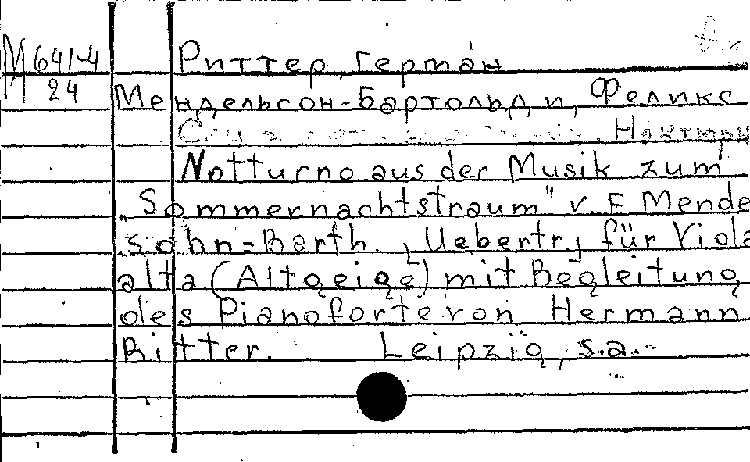 М 641-4 Риттер, Герман
М 24 Мендельсон-Бартольди, Феликс
Notturno aus der Musik zum
„Sommernachtstraum" v. F Mende
sohn=Barth. [Uebertr] für Viola
alta (Altgeige) mit Begleitung
des Pianoforte von Hermann
Ritter. Leipzig, s.a.